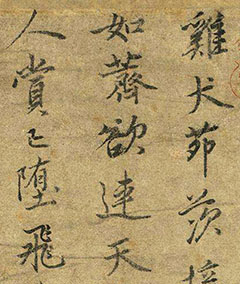 雞犬茆茨
如薺欲連天
人賞已墮飛